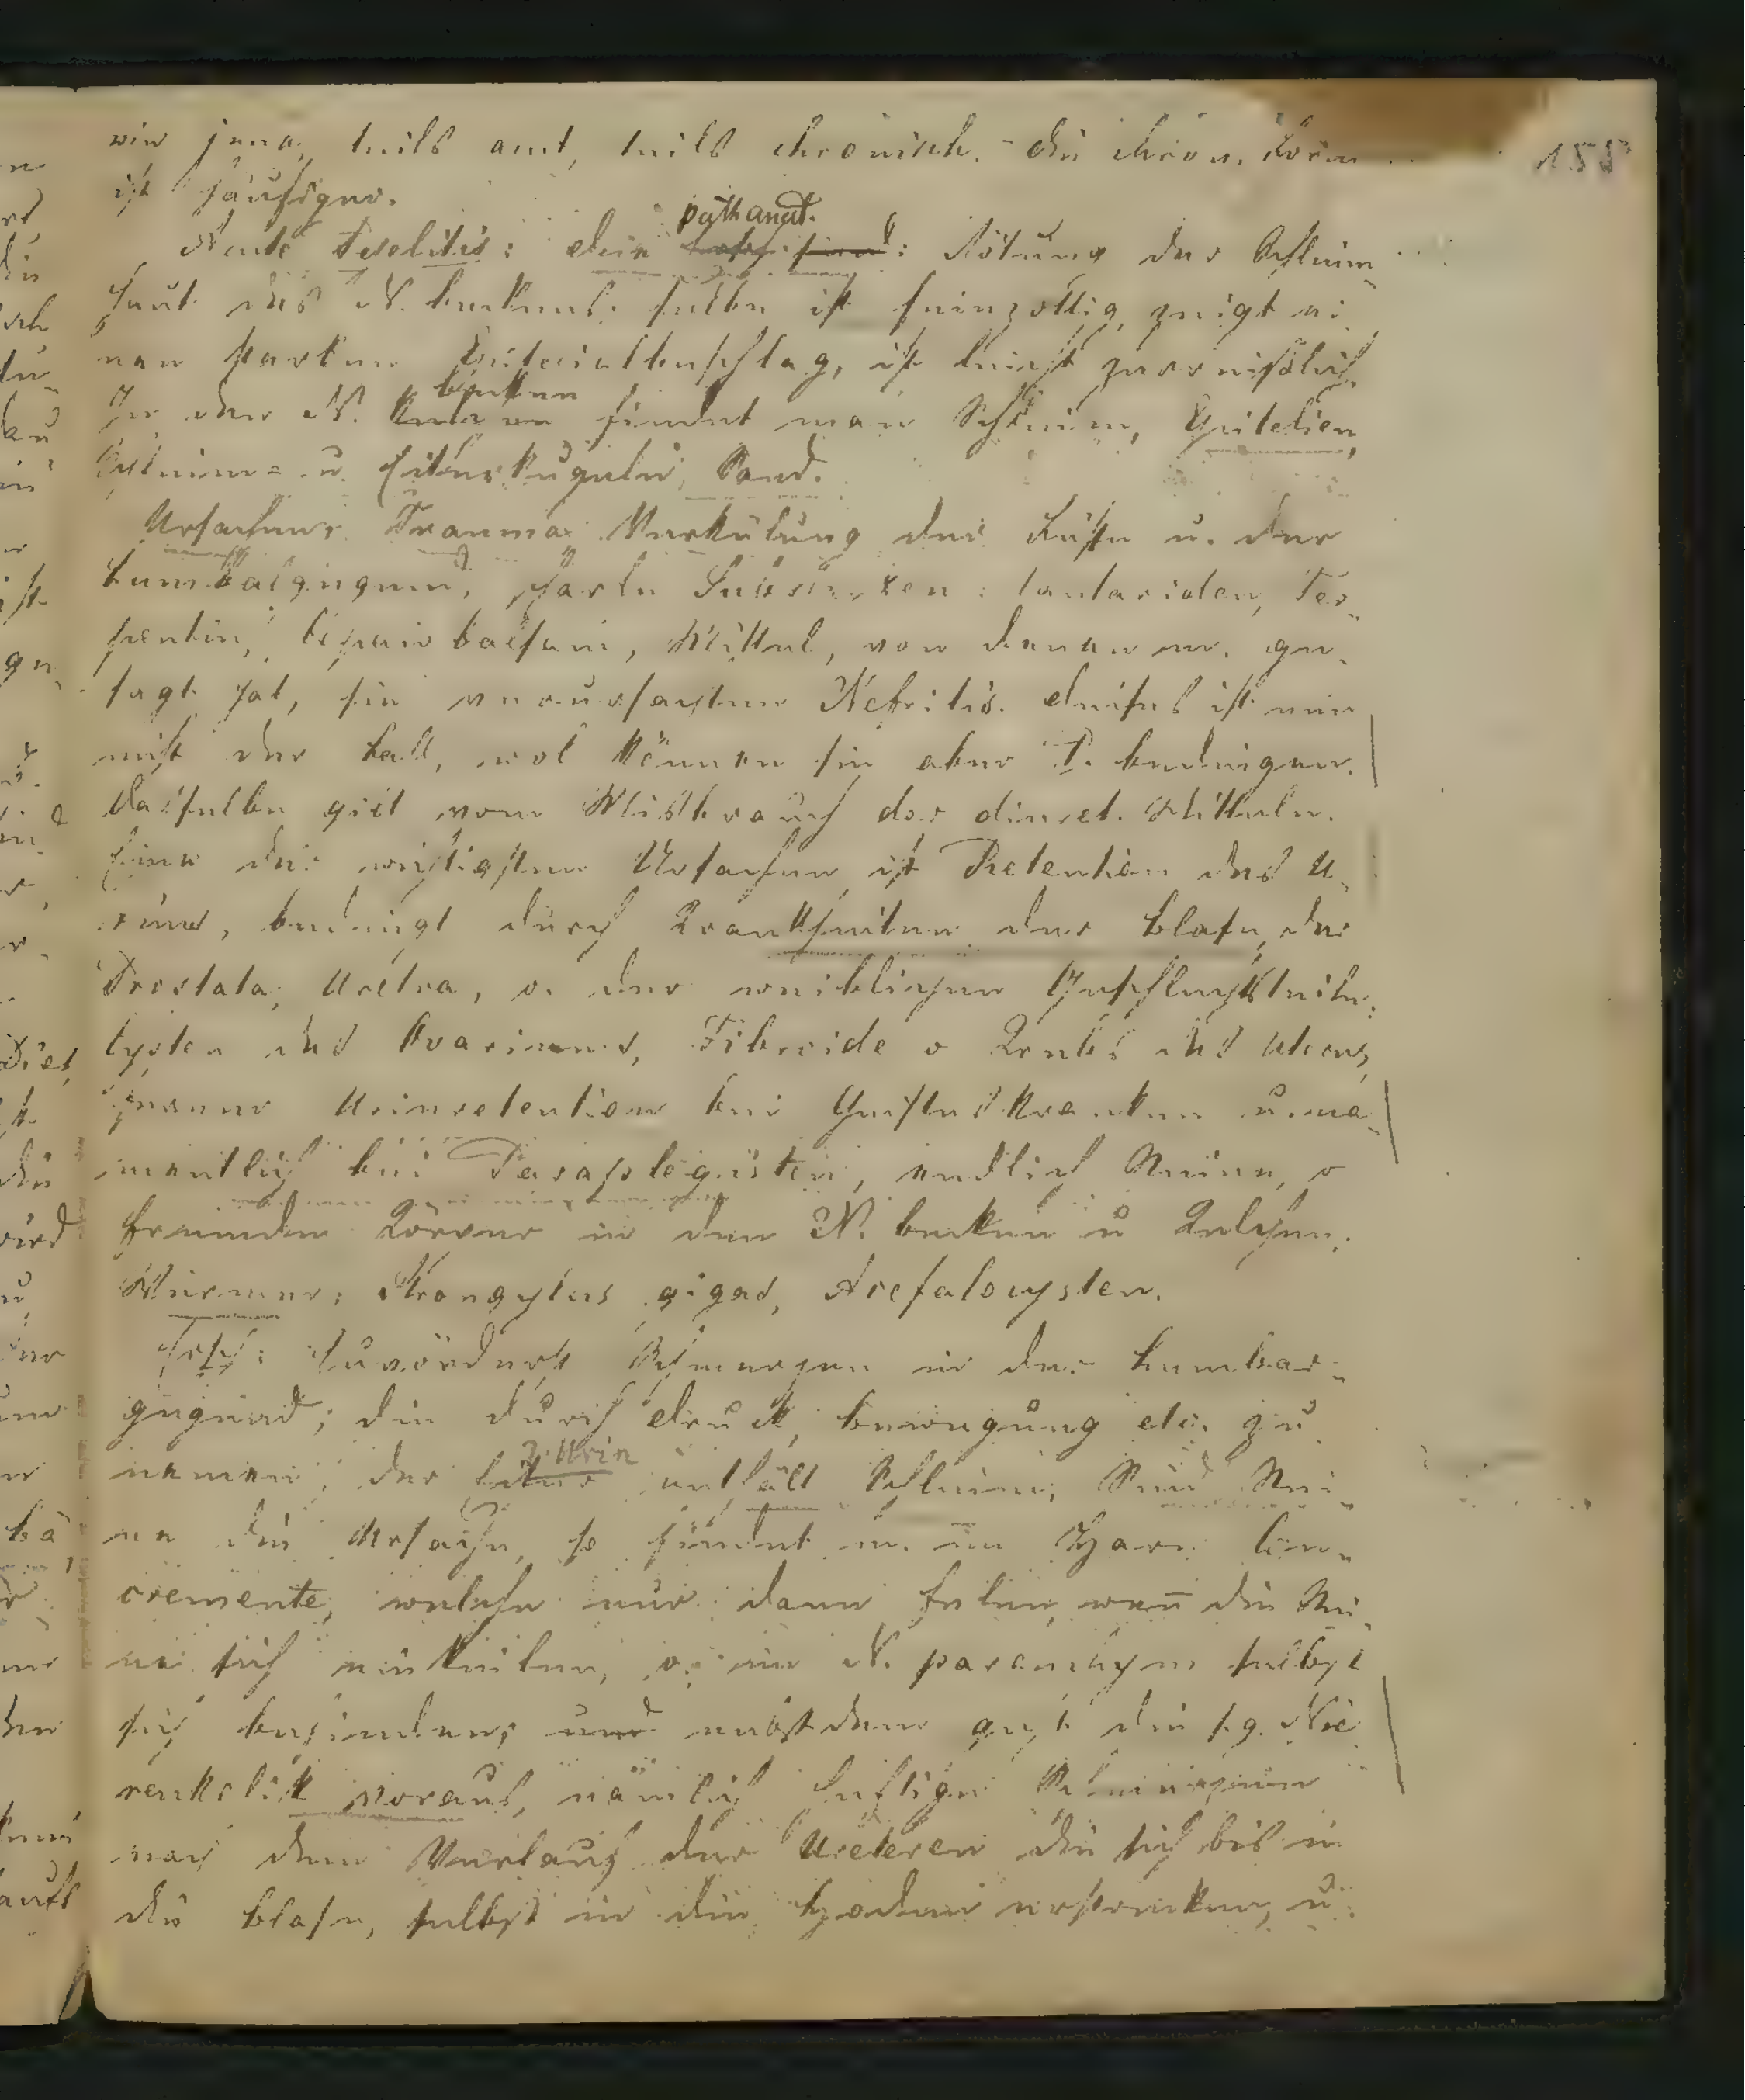 155
wie jene, teils acut, teils chronisch. - Die chron. Form
ist häufiger.
Acute Pyelitis: Die pathanat.: Rötung der Schleim-
haut des N. beckens. selbe ist feinzottig, zeigt ei-
nen starken Epitelialbeschlag, ist leicht zerreißlich.
In den N. becken findet man Schleim, Epitelien,
Schleim- u. Eiterkügeln, Sand.
Ursachen: Trauma: Verkülung der Füße u. der
Lumbalgegend, scharfe Substanzen: Cantariden, Ter-
pentin, Copaivbalsam, Mittel, von denen m. ge-
sagt hat, sie verursachten Nefritis. Dieses ist nie
nicht der Fall, wol können sie aber P. bedingen.
Dasselbe gilt vom Misbrauch der diuret. Mitteln.
Eine der wichtigsten Ursachen ist Retention des U-
rins, bedingt durch Krankheiten der Blase, der
Prostata, Uretra, o. der weiblichen Geschlechtsteile.
Cysten des Ovariums, Fibroide o Krebs des Uterus,
ferner Urinretention bei Geisteskranken u. na-
mentlich bei Paraplegisten, endlich Steine, o
fremden Körper in den N. becken u Kelchen.
Würmer: Strongylus gigas, Acefalocysten.
: Zuvörderst Schmerzen in der Lumbar-
gegend; die durch Druck, bewegung etc. zu
nemen; der Urin enthält Schleim; Sind Stei-
ne die Ursache, so findet m. im Harn Con-
cremente, welche nur dann felen, wen̄ die Stei-
ne sich einkeilen, o. im N. parenchym selbst
sich befinden; und nebstdem geht die s.g. Nie
renkolik voraus, nämlich heftige Schmerzen
nach dem Verlauf der Ureteren die sich bis in
die Blase, selbst in die Hoden erstrecken, u.